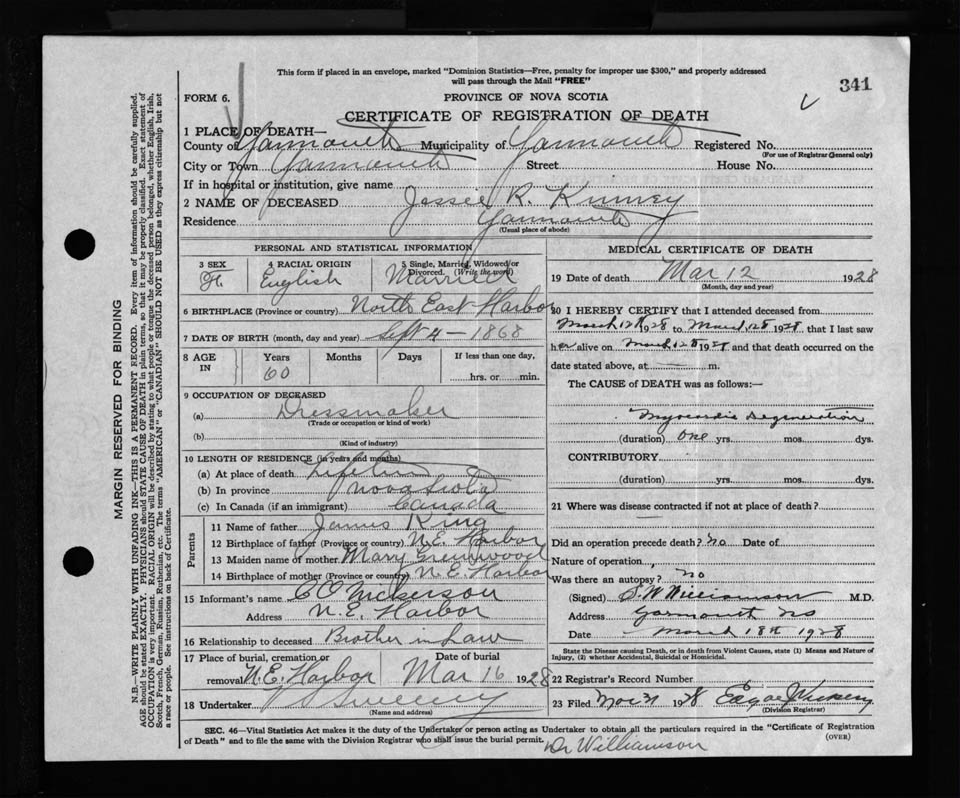 This form if placed in an envelope, marked "Dominion Statistics—Free, penalty for improper use $300," and properly addressed
will pass through the Mail "FREE"
341
FORM 6.
PROVINCE OF NOVA SCOTIA
CERTIFICATE OF REGISTRATION OF DEATH
1 PLACE OF DEATH—
County of Yarmouth Municipality of Yarmouth Registered No.
(For use of Registrar General only)
City or Town Yarmouth Street House No.
If in hospital or institution, give name
2 NAME OF DECEASED Jessie R. Kinney
Residence Yarmouth
(Usual place of abode)
PERSONAL AND STATISTICAL INFORMATION
3 SEX 4 RACIAL ORIGIN 5 Single, Married, Widowed or
Divorced. (Write the word)
F. English Married
6 BIRTHPLACE (Province or country) North East Harbor
7 DATE OF BIRTH (month, day and year) Sept 4 — 1868
8 AGE IN Years Months Days If less than one day,
60 hrs. or min.
9 OCCUPATION OF DECEASED
(a) Dressmaker
(Trade or occupation or kind of work)
(b)
(Kind of industry)
10 LENGTH OF RESIDENCE (in years and months)
(a) At place of death Lifetime
(b) In province Nova Scotia
(c) In Canada (if an immigrant) Canada
Parents
11 Name of father James King
12 Birthplace of father (Province or country) N.E. Harbor
13 Maiden name of mother Mary Greenwood
14 Birthplace of mother (Province or country) N.E. Harbor
15 Informant's name C O Nickerson
Address N.E. Harbor
16 Relationship to deceased Brother in Law
17 Place of burial, cremation or Date of burial
removal N.E. Harbor Mar 16 1928
18 Undertaker V Sweeny
(Name and address)
MEDICAL CERTIFICATE OF DEATH
19 Date of death Mar 12 1928
(Month, day and year)
20 I HEREBY CERTIFY that I attended deceased from
March 12th 1928 to March 12th 1928 that I last saw
her alive on March 12th 1928 and that death occurred on the
date stated above, at — m.
The CAUSE of DEATH was as follows:—
Myocardic Degeneration
(duration) One yrs. mos. dys.
CONTRIBUTORY
(duration) yrs. mos. dys.
21 Where was disease contracted if not at place of death?
Did an operation precede death? No Date of
Nature of operation
Was there an autopsy? No
(Signed) S.W. Williamson M.D.
Address Yarmouth NS
Date March 18th 1928
State the Disease causing Death, or in death from Violent Causes, state (1) Means and Nature of
Injury, (2) whether Accidental, Suicidal or Homicidal.
22 Registrar's Record Number
23 Filed 31 1928 Edgar J Vickery
(Division Registrar)
SEC. 46—Vital Statistics Act makes it the duty of the Undertaker or person acting as Undertaker to obtain all the particulars required in the "Certificate of Registration
of Death" and to file the same with the Division Registrar who shall issue the burial permit. (OVER)
Dr Williamson
MARGIN RESERVED FOR BINDING
N.B.—WRITE PLAINLY WITH UNFADING INK—THIS IS A PERMANENT RECORD. Every item of information should be carefully supplied.
AGE should be stated EXACTLY. PHYSICIANS should STATE CAUSE OF DEATH in plain terms, so that it may be properly classified. Exact statement of
OCCUPATION is very important. RACIAL ORIGIN will be described by stating to what people or tongue the deceased person belonged, whether English, Irish,
Scotch, French, German, Russian, Ruthenian, etc. The terms "AMERICAN" or "CANADIAN" SHOULD NOT BE USED as they express citizenship but not
a race or people. See instructions on back of Certificate.